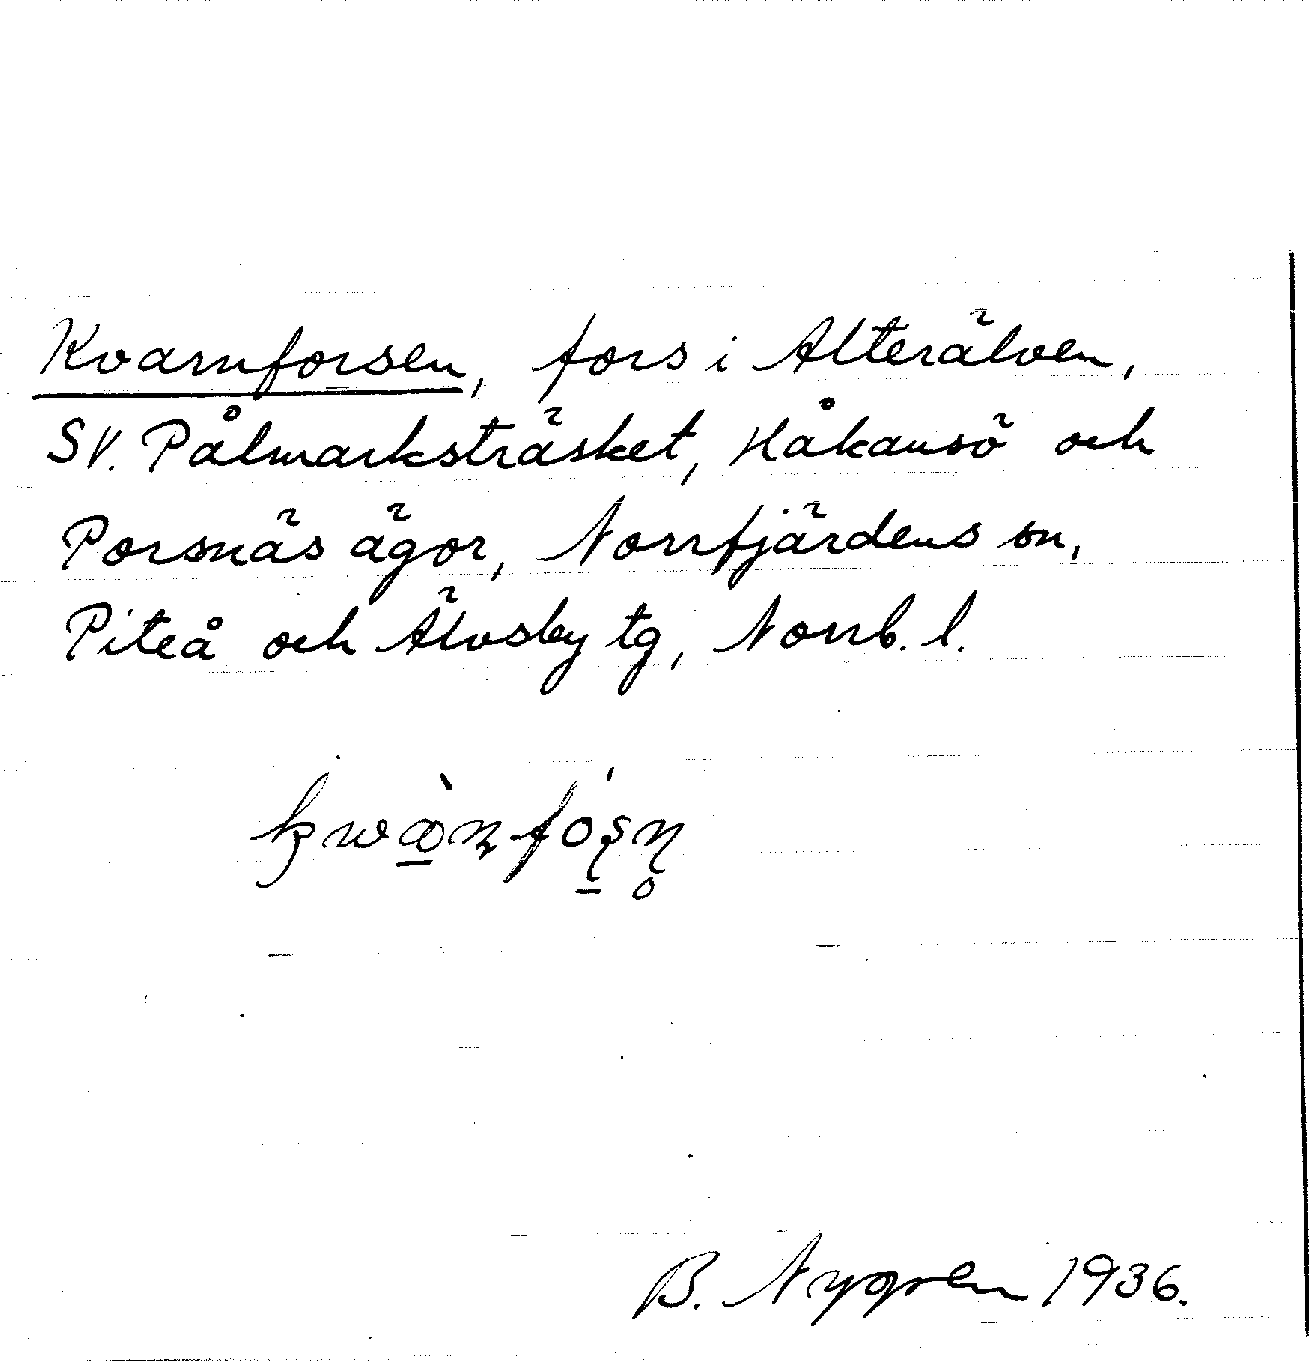 Kvarnforsen, fors i Alterälven,
SV. Pålmarksträsket, Håkansö och
Porsnäs ägor, Norrfjärdens sn,
Piteå och Älvsby tg, Norrb. l.
B. Nygren 1936.